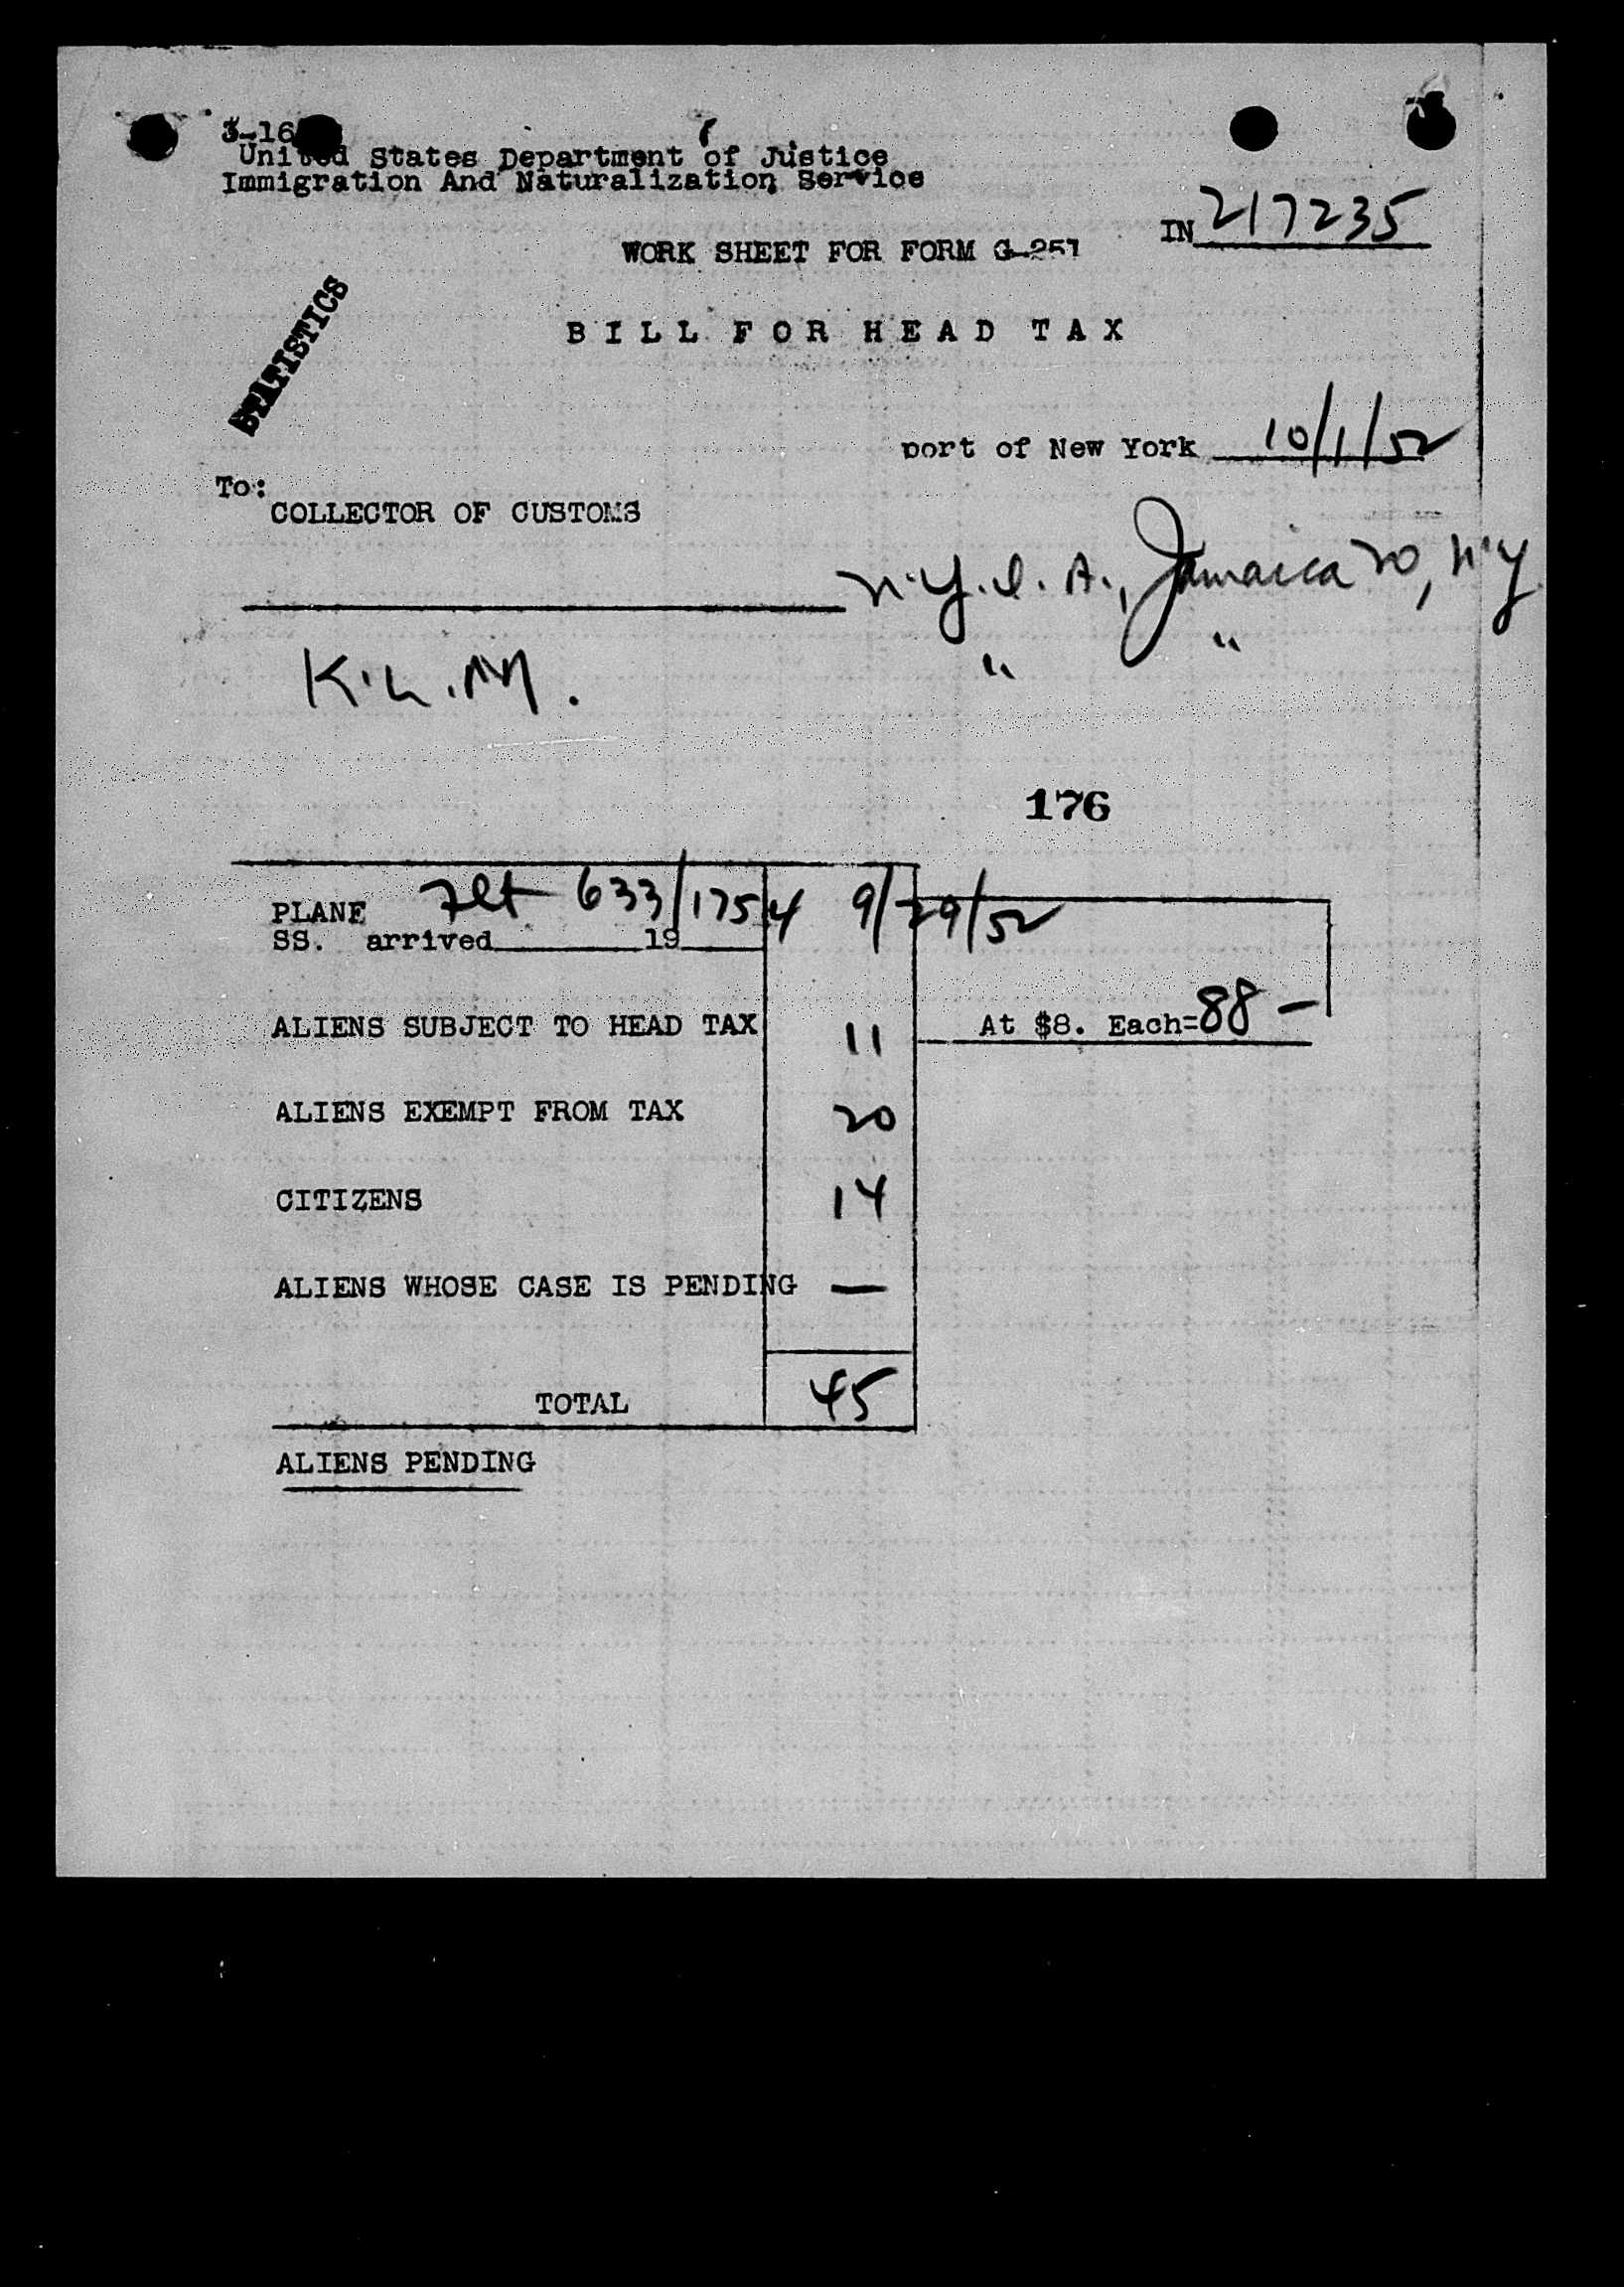 3-16
United States Department of Justice
Immigration And Naturalization Service
IN 217235
WORK SHEET FOR FORM G-251
STATISTICS
BILL FOR HEAD TAX
port of New York 10/1/52
To:
COLLECTOR OF CUSTOMS
N.Y.I.A., Jamaica 20, N.Y
K.L.M. " "
176
PLANE Flt 633/1754 9/29/52
SS. arrived 19
ALIENS SUBJECT TO HEAD TAX 11 At $8. Each=88 —
ALIENS EXEMPT FROM TAX 20
CITIZENS 14
ALIENS WHOSE CASE IS PENDING —
TOTAL 45
ALIENS PENDING